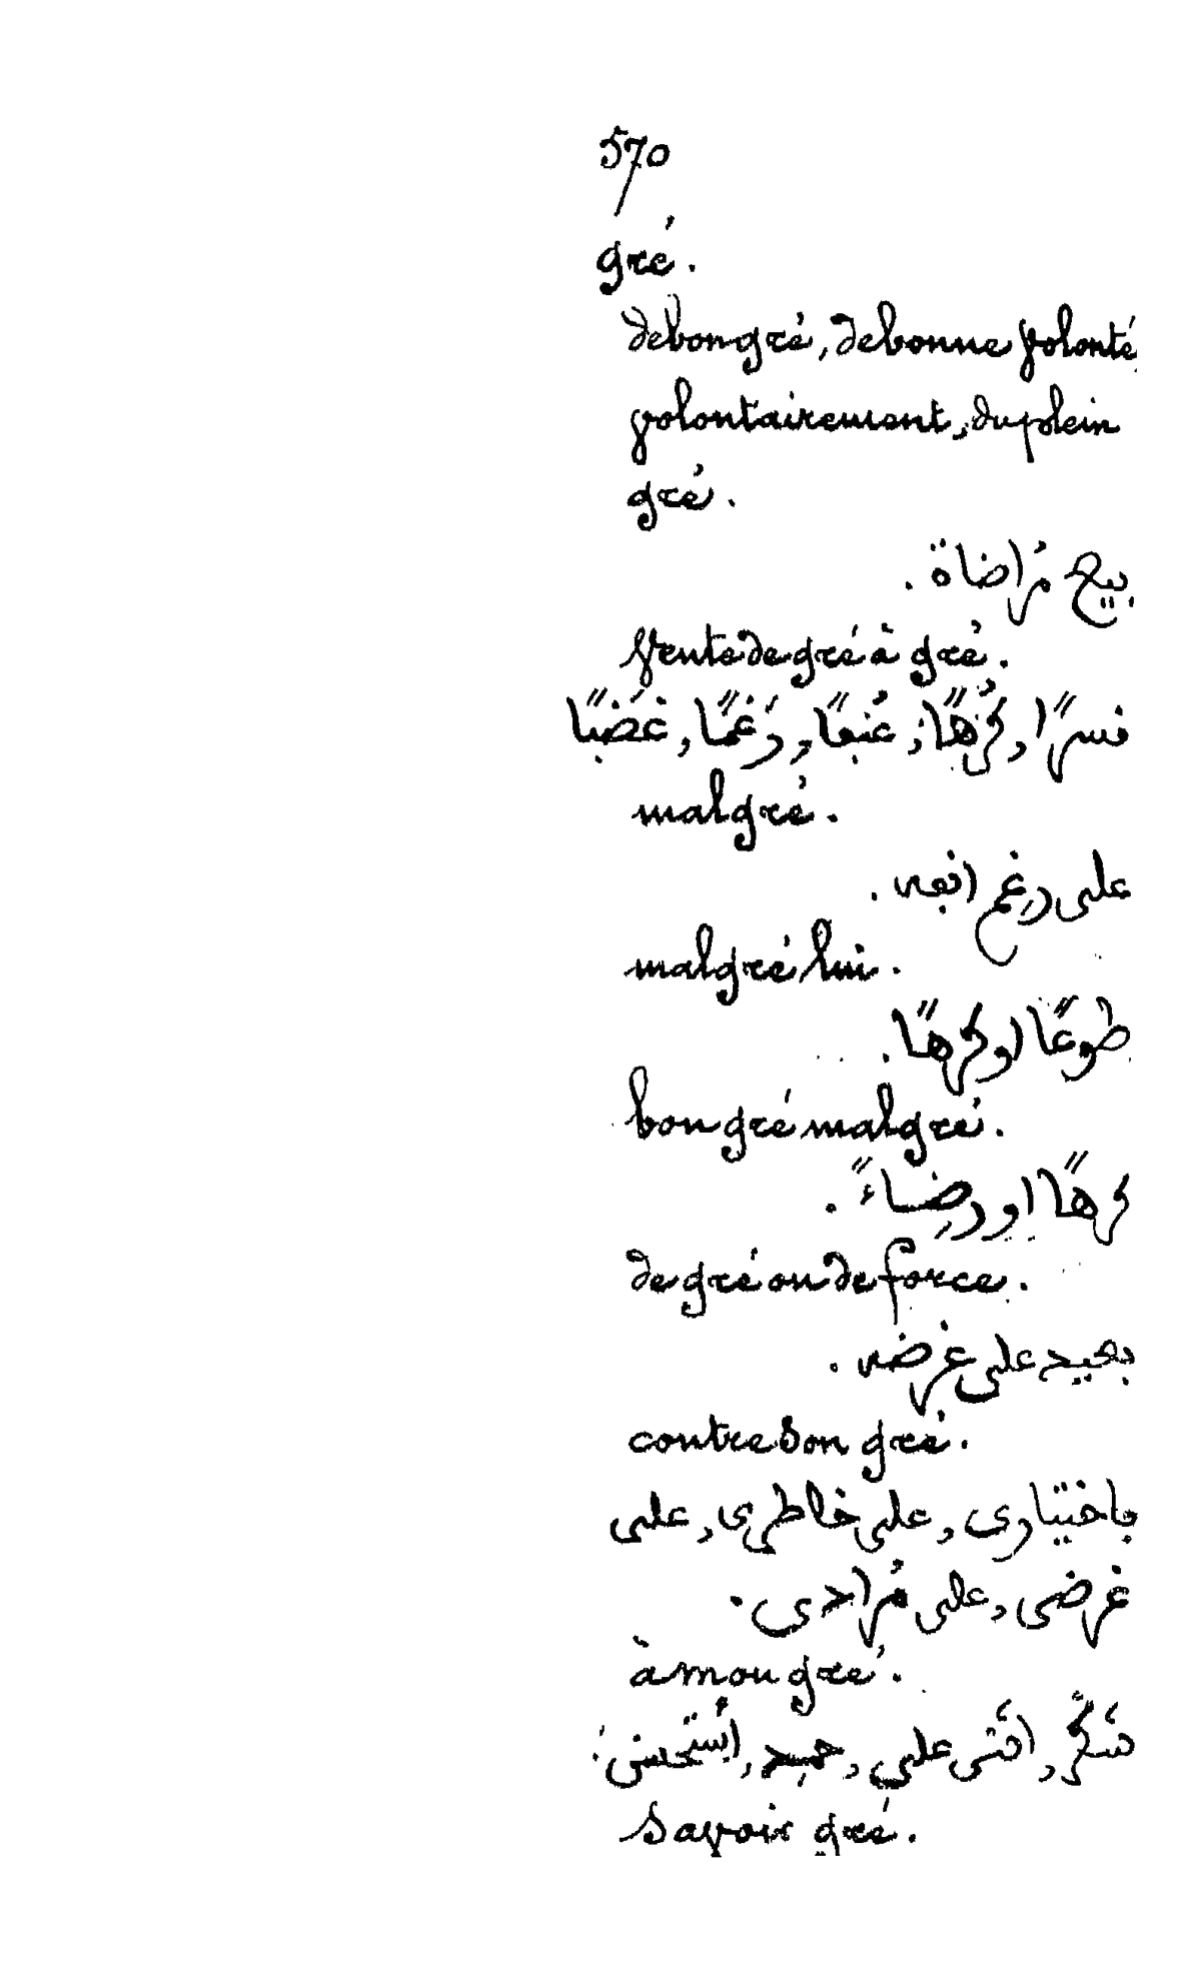 570
gré.
de bon gré, de bonne volonté,
volontairement, du plein
gré.
بيع مُراضاة.
Vente de gré à gré.
قسرًا, كُرْهًا, عُنفًا, رَغْمًا, غَصْبًا
malgré.
على رِغم انفه.
malgré lui.
طوعًا او كرهًا.
bon gré mal gré.
كرهًا او رِضاءً.
de gré ou de force.
على غرضه.
contre son gré.
باختيارى, على خاطرى, على
غرضى, على مُرادى.
à mon gré.
شَكَر, اثنَى على, حمِد, اِستحسن.
Savoir gré.